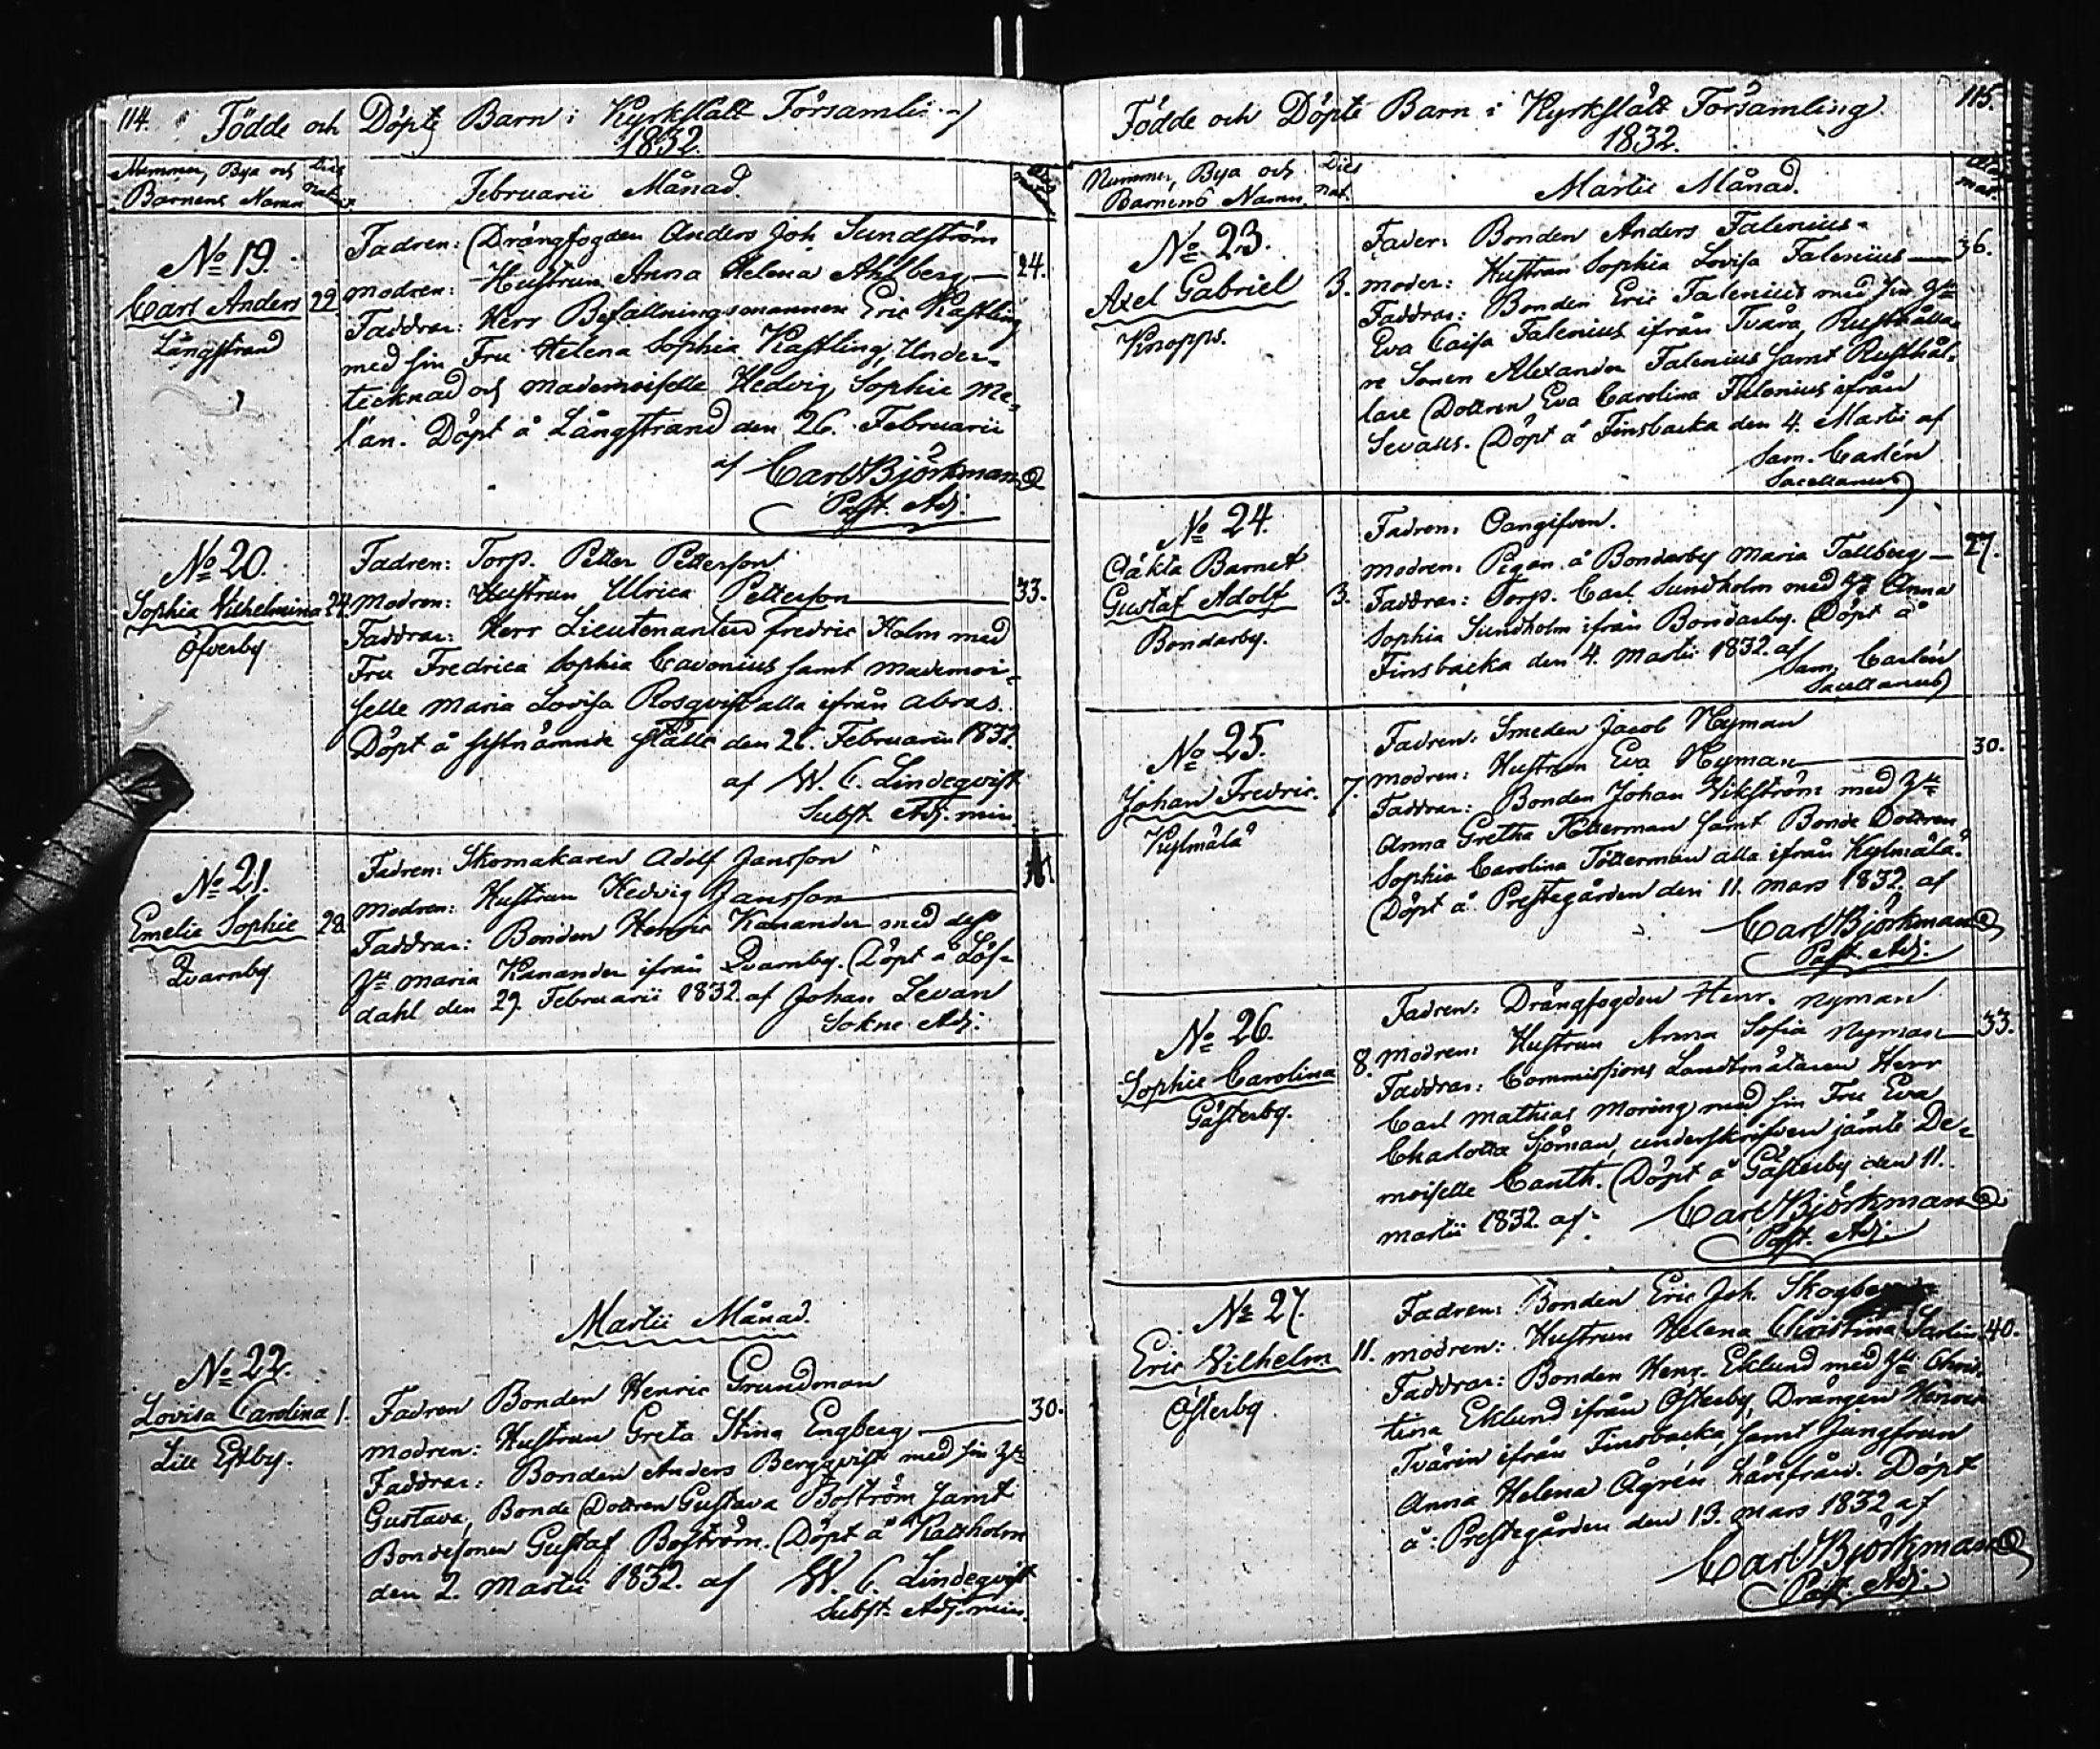 114. Födde och Döpte Barn i Kyrkslätt Församling
1832.
Nummer, Bya och
Barnens Namn
Dies
nat.
Februarii Månad.
No 19.
Carl Anders
22.
Långstrand
Fadren: Drängfogden Anders Joh Sundström
Modren: Hustrun Anna Helena Ahlberg — 24.
Faddrar: Herr Befallningsmannen Eric Kastling
med sin Fru Helena Sophia Kastling, Under-
tecknad och Mademoiselle Hedvig Sophie Me-
lan. Döpt å Långstrand den 26. Februarii
af Carl Björkman
Past. Adj.
No 20.
Sophia Vilhelmina 24.
Öfverby
Fadren: Torp. Petter Petterson
Modren: Hustrun Ulrica Petterson — 33.
Faddrar: Herr Lieutenanten Fredric Holm med
Fru Fredrica Sophia Cavonius samt Mademoi-
selle Maria Lovisa Rosqvist alla ifrån Abras.
Döpt å sistnämnde ställe den 26. Februarii 1832.
af W. C. Lindeqvist
Subst. Adj. min.
No 21.
Emelie Sophie 28.
Qvarnby
Fadren: Skomakaren Adolf Jansson
Modren: Hustrun Hedvig Jansson —
Faddrar: Bonden Henric Kanander med dess
Hu Maria Kanander ifrån Qvarnby. Döpt å Löf-
dahl den 29. Februarii 1832. af Johan Levan
Sokne Adj.
Martii Månad.
No 22.
Lovisa Carolina 1.
Lill Estby.
Fadren Bonden Henric Grundman
Modren: Hustrun Greta Stina Engberg — 30.
Faddrar: Bonden Anders Bergqvist med sin Hu
Gustava, Bonde Dottren Gustava Boström samt
Bondesonen Gustaf Boström. Döpt å Rattholm
den 2. Martii 1832. af W. C. Lindeqvist
Subst. Adj. min.
Födde och Döpte Barn i Kyrkslätt Församling. 115.
1832.
Nummer, Bya och
Barnens Namn.
Dies
nat.
Martii Månad.
No 23.
Axel Gabriel 3.
Knopps.
Fader: Bonden Anders Falenius
Moder: Hustrun Sophia Lovisa Falenius — 36.
Faddrar: Bonden Eric Falenius med sin Hu
Eva Caisa Falenius ifrån Tvärå, Rusthålla-
re Sonen Alexander Falenius samt Rusthål-
lare Dottren Eva Carolina Falenius ifrån
Sevalls. Döpt å Finsbacka den 4. Martii af
Sam. Carlén
Sacellanus
No 24.
Oäkta Barnet
Gustaf Adolf 3.
Bondarby.
Fadren: Oangifven.
Modren: Pigan å Bondarby Maria Tallberg — 27.
Faddrar: Torp. Carl Sundholm med Hu Anna
Sophia Sundholm ifrån Bondarby. Döpt å
Finsbacka den 4. Martii 1832. af
Sam. Carlén
Sacellanus
No 25.
Johan Fredric. 7.
Kylmälä
Fadren: Smeden Jacob Nyman
Modren: Hustrun Eva Nyman — 30.
Faddrar: Bonden Johan Vikström med Hu
Anna Gretha Tötterman samt Bonde Dottren
Sophia Carolina Tötterman alla ifrån Kylmälä.
Döpt å Prestegården den 11. Mars 1832. af
Carl Björkman
Past. Adj.
No 26.
Sophie Carolina 8.
Gästerby.
Fadren: Drängfogden Henr. Nyman
Modren: Hustrun Anna Sofia Nyman — 33.
Faddrar: Commissions Landtmätaren Herr
Carl Mathias Moring med sin Fru Eva
Charlotta Sjöman, underskrifven jämte De-
moiselle Canth. Döpt å Gästerby den 11.
Martii 1832. af Carl Björkman
Past. Adj.
No 27.
Eric Vilhelm 11.
Österby
Fadren: Bonden Eric Joh. Skogberg
Modren: Hustrun Helena Christina Sarlin 40.
Faddrar: Bonden Henr. Eklund med Hu Chris-
tina Eklund ifrån Österby, Drängen
Tvärin ifrån Finsbacka, samt Jungfrun
Anna Helena Ågrén härifrån. Döpt
å Prestegården den 13. Mars 1832 af
Carl Björkman
Past. Adj.